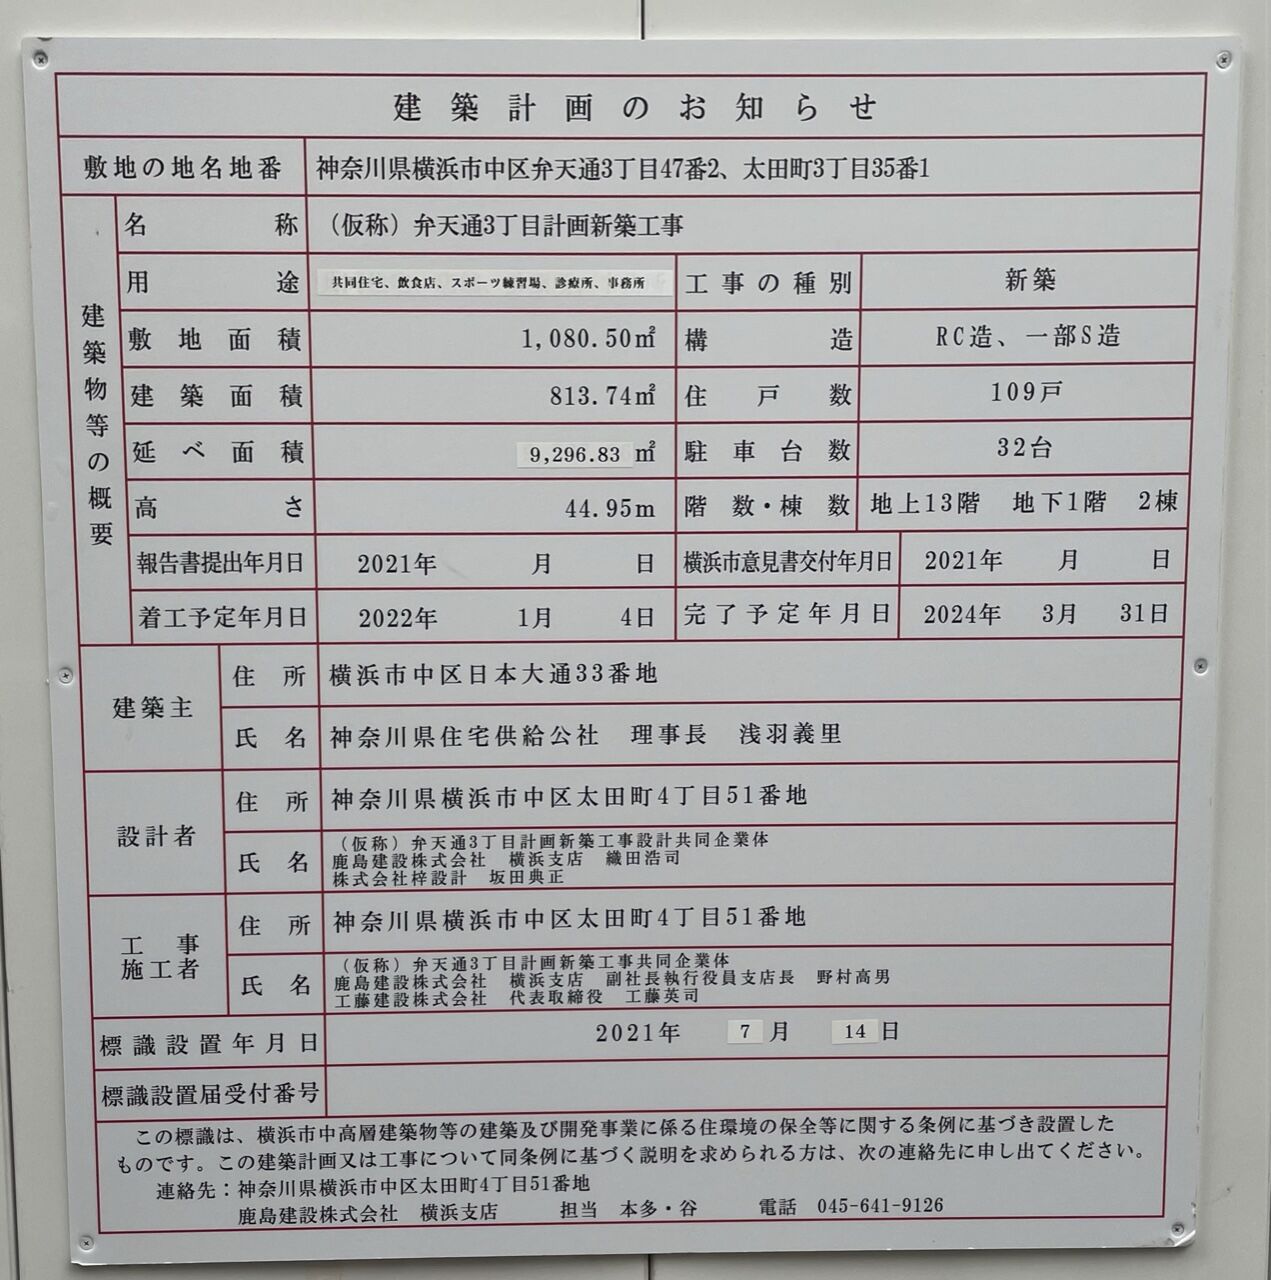 建築計画のお知らせ
敷地の地名地番 神奈川県横浜市中区弁天通3丁目47番2、太田町3丁目35番1
建築物等の概要
名称 （仮称）弁天通3丁目計画新築工事
用途 共同住宅、飲食店、スポーツ練習場、診療所、事務所 工事の種別 新築
敷地面積 1,080.50㎡ 構造 RC造、一部S造
建築面積 813.74㎡ 住戸数 109戸
延べ面積 9,296.83㎡ 駐車台数 32台
高さ 44.95m 階数・棟数 地上13階 地下1階 2棟
報告書提出年月日 2021年 月 日 横浜市意見書交付年月日 2021年 月 日
着工予定年月日 2022年 1月 4日 完了予定年月日 2024年 3月 31日
建築主 住所 横浜市中区日本大通33番地
氏名 神奈川県住宅供給公社 理事長 浅羽義里
設計者 住所 神奈川県横浜市中区太田町4丁目51番地
氏名 （仮称）弁天通3丁目計画新築工事設計共同企業体
鹿島建設株式会社 横浜支店 織田浩司
株式会社梓設計 坂田典正
工事施工者 住所 神奈川県横浜市中区太田町4丁目51番地
氏名 （仮称）弁天通3丁目計画新築工事共同企業体
鹿島建設株式会社 横浜支店 副社長執行役員支店長 野村高男
工藤建設株式会社 代表取締役 工藤英司
標識設置年月日 2021年 7月 14日
標識設置届受付番号
この標識は、横浜市中高層建築物等の建築及び開発事業に係る住環境の保全等に関する条例に基づき設置した
ものです。この建築計画又は工事について同条例に基づく説明を求められる方は、次の連絡先に申し出てください。
連絡先：神奈川県横浜市中区太田町4丁目51番地
鹿島建設株式会社 横浜支店 担当 本多・谷 電話 045-641-9126